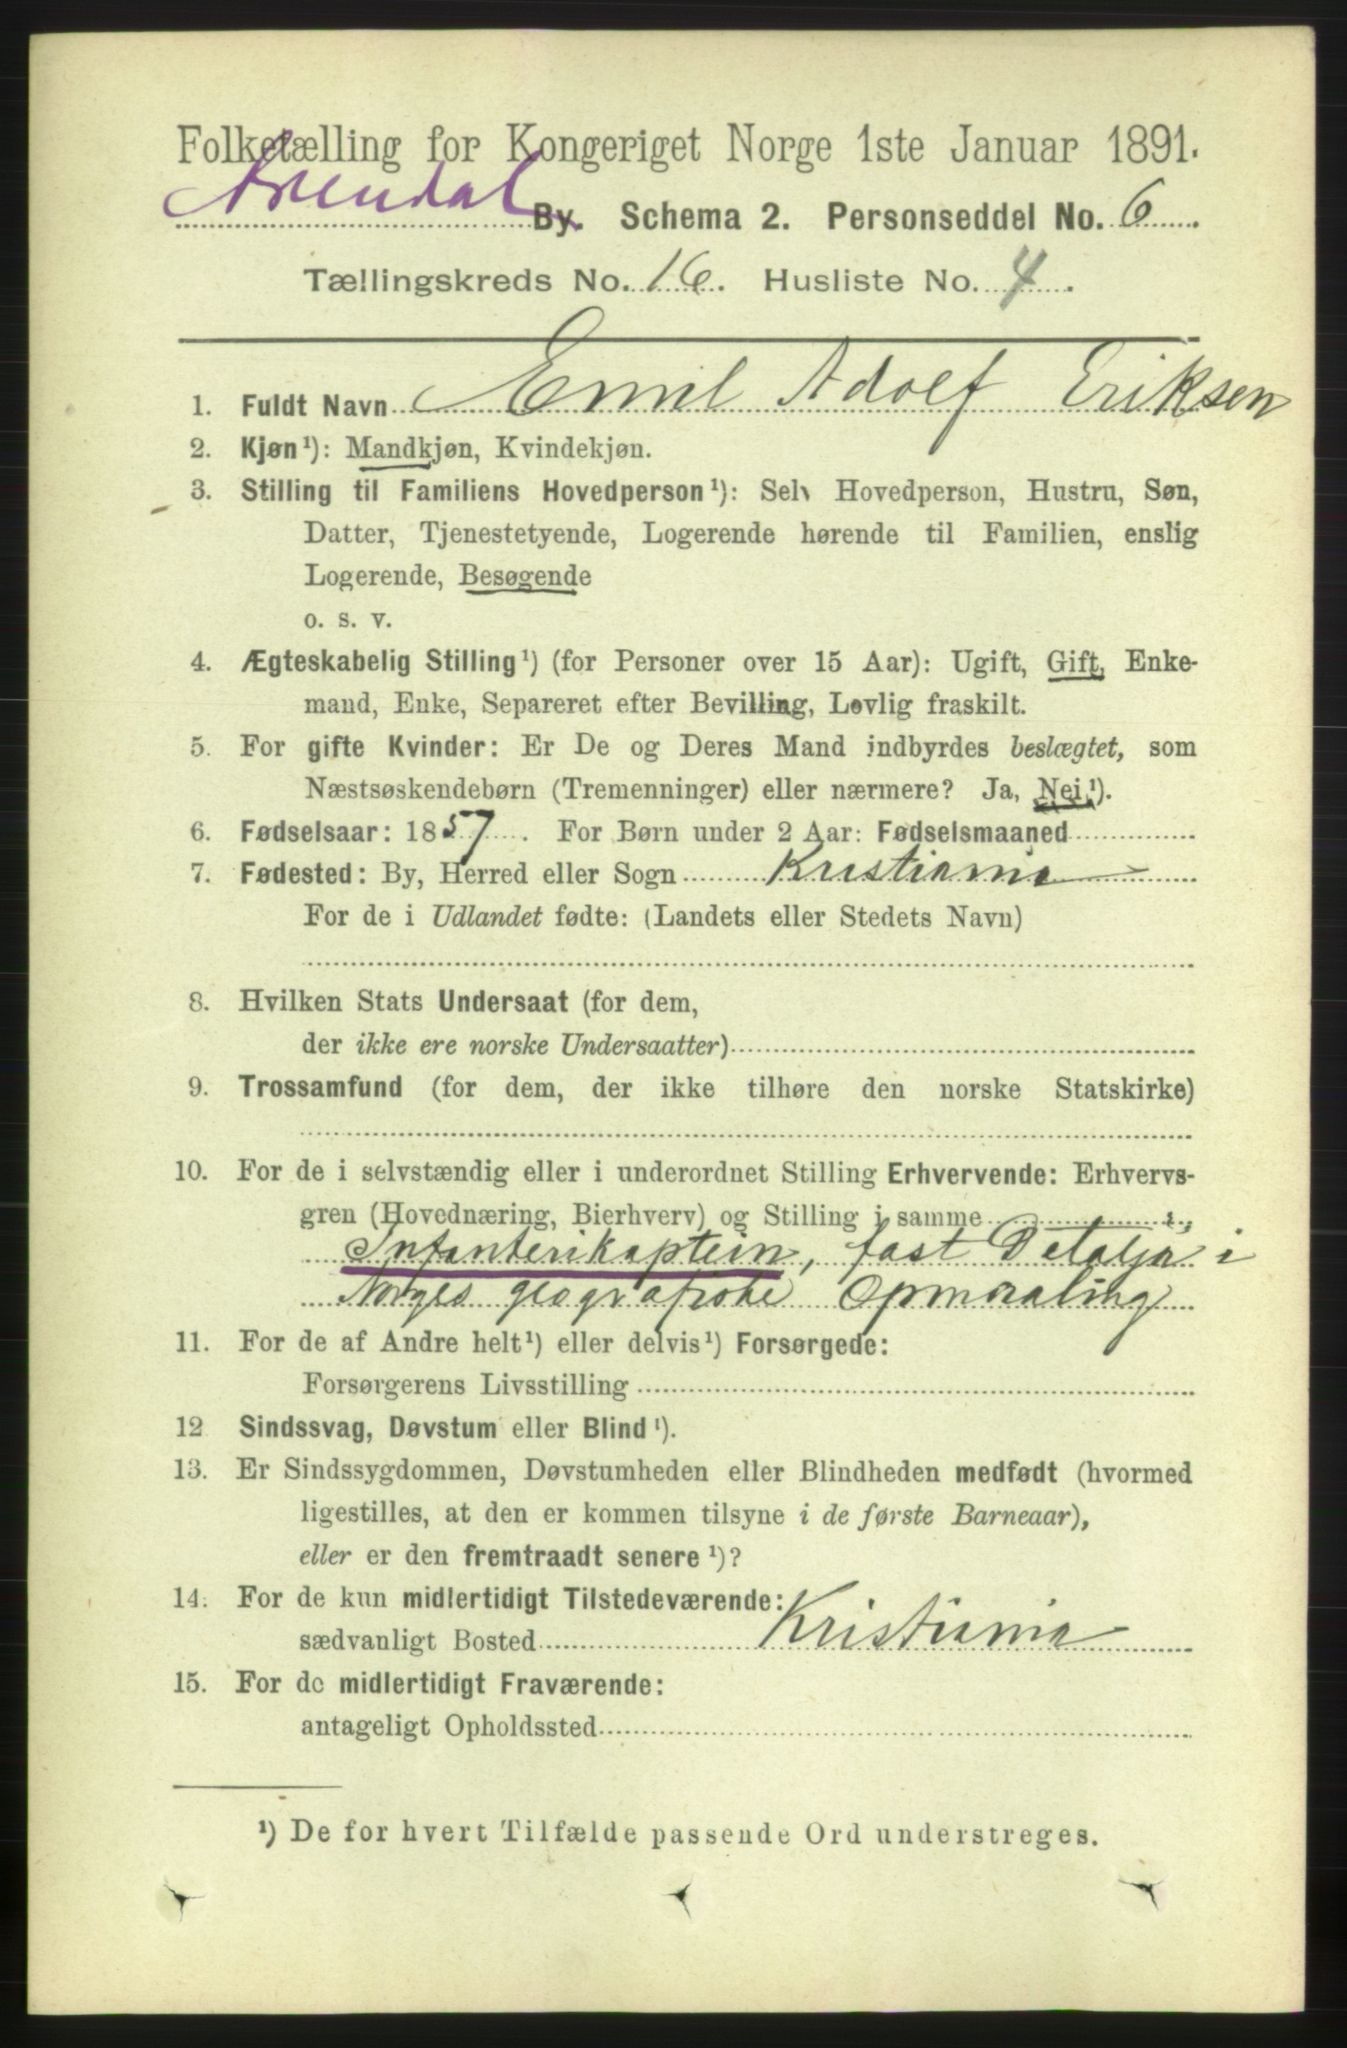 Folketælling for Kongeriget Norge 1ste Januar 1891.
Arendal By. Schema 2. Personseddel No. 6
Tællingskreds No. 16. Husliste No. 4.
1. Fuldt Navn Emil Adolf Eriksen
2. Kjøn¹): Mandkjøn, Kvindekjøn.
3. Stilling til Familiens Hovedperson¹): Selv Hovedperson, Hustru, Søn,
Datter, Tjenestetyende, Logerende hørende til Familien, enslig
Logerende, Besøgende
o. s. v.
4. Ægteskabelig Stilling¹) (for Personer over 15 Aar): Ugift, Gift, Enke-
mand, Enke, Separeret efter Bevilling, Lovlig fraskilt.
5. For gifte Kvinder: Er De og Deres Mand indbyrdes beslægtet, som
Næstsøskendebørn (Tremenninger) eller nærmere? Ja, Nei.¹).
6. Fødselsaar: 1857. For Børn under 2 Aar: Fødselsmaaned
7. Fødested: By, Herred eller Sogn Kristiania
For de i Udlandet fødte: (Landets eller Stedets Navn)
8. Hvilken Stats Undersaat (for dem,
der ikke ere norske Undersaatter)
9. Trossamfund (for dem, der ikke tilhøre den norske Statskirke)
10. For de i selvstændig eller i underordnet Stilling Erhvervende: Erhvervs-
gren (Hovednæring, Bierhverv) og Stilling i samme
Infanterikaptein, fast Detaljø i
Norges geografiske Opmaaling
11. For de af Andre helt¹) eller delvis¹) Forsørgede:
Forsørgerens Livsstilling
12 Sindssvag, Døvstum eller Blind¹).
13. Er Sindssygdommen, Døvstumheden eller Blindheden medfødt (hvormed
ligestilles, at den er kommen tilsyne i de første Barneaar),
eller er den fremtraadt senere¹)?
14. For de kun midlertidigt Tilstedeværende:
sædvanligt Bosted Kristiania
15. For de midlertidigt Fraværende:
antageligt Opholdssted
¹) De for hvert Tilfælde passende Ord understreges.